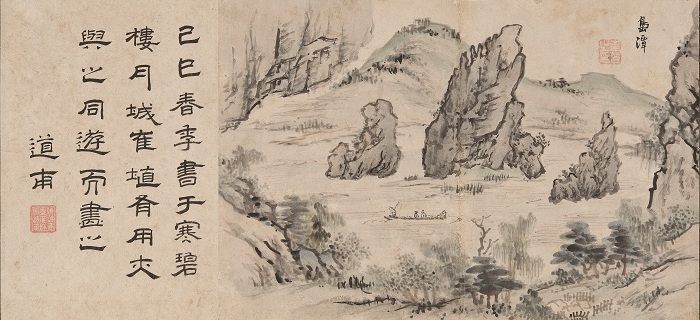 島潭
己巳春季書于寒碧
樓月城崔埴有用夫
與之同遊而畫之
道甫